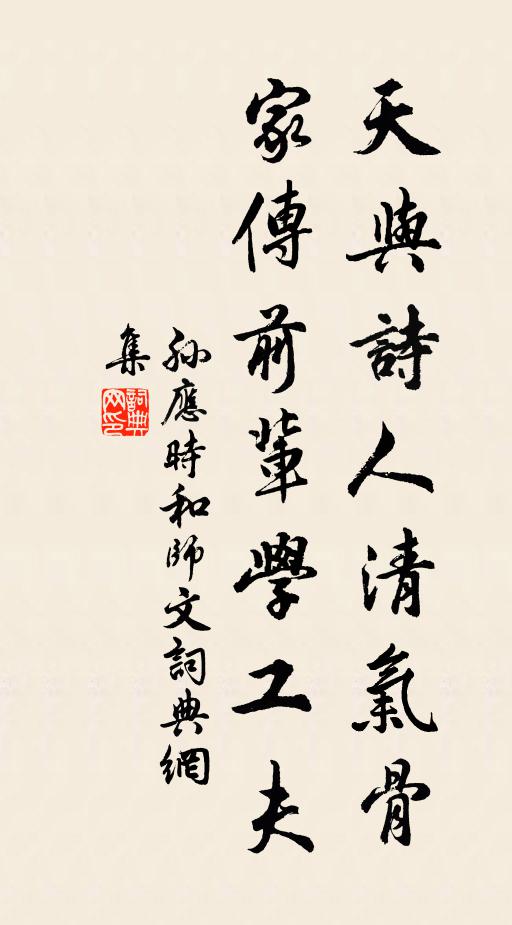 天與詩人清氣骨
家傳前輩學工夫
孫應時和師文詞典網
集
詞典
網印